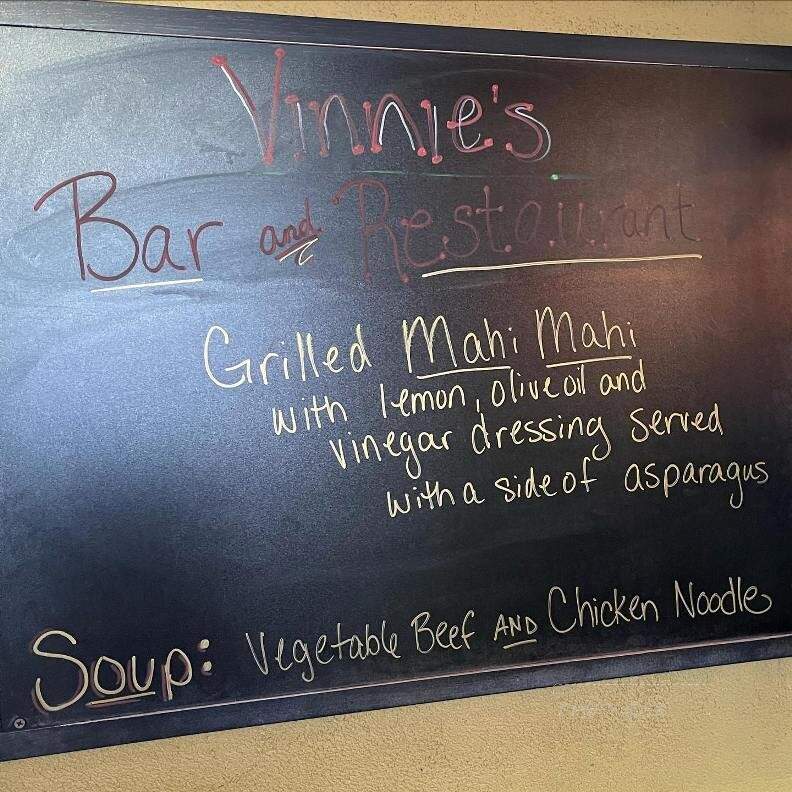 Vinnie's
Bar and Restaurant
Grilled Mahi Mahi
with lemon, olive oil and
vinegar dressing served
with a side of asparagus
Soup: Vegetable Beef AND Chicken Noodle